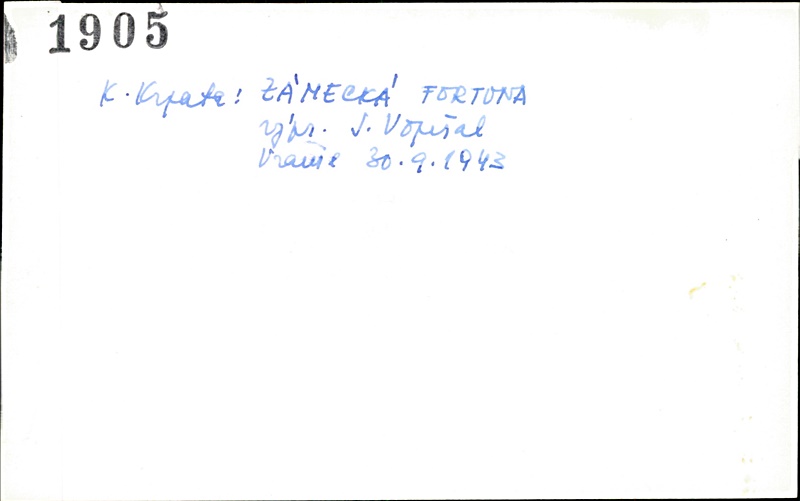 1905
K. Krpata: ZÁMECKÁ FORTUNA
výpr. J. Vopršal
30.9.1943